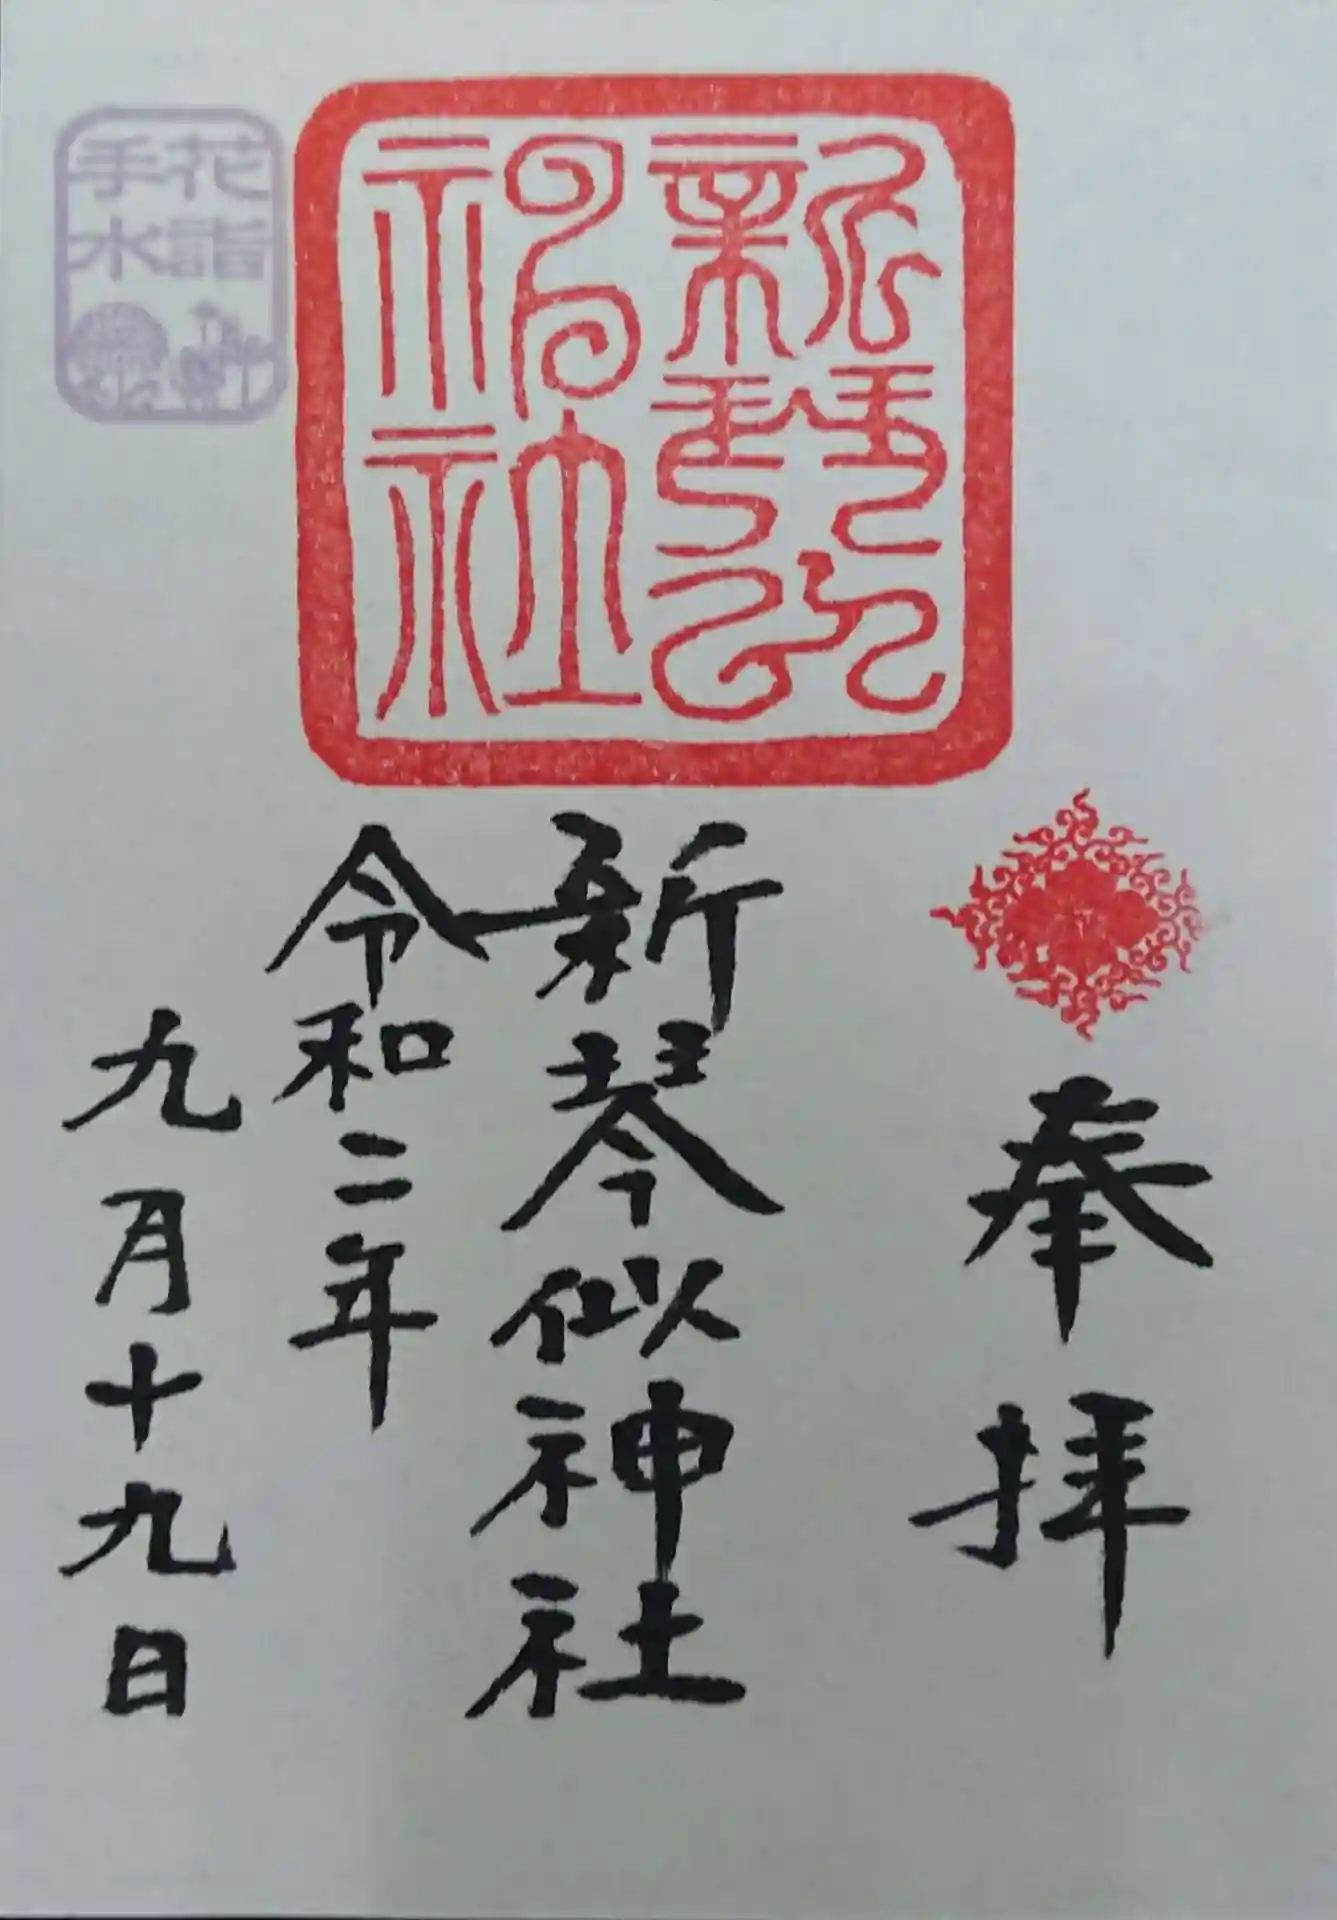 奉拝
新琴似神社
新琴似神社
令和二年
九月十九日
花詣
手水